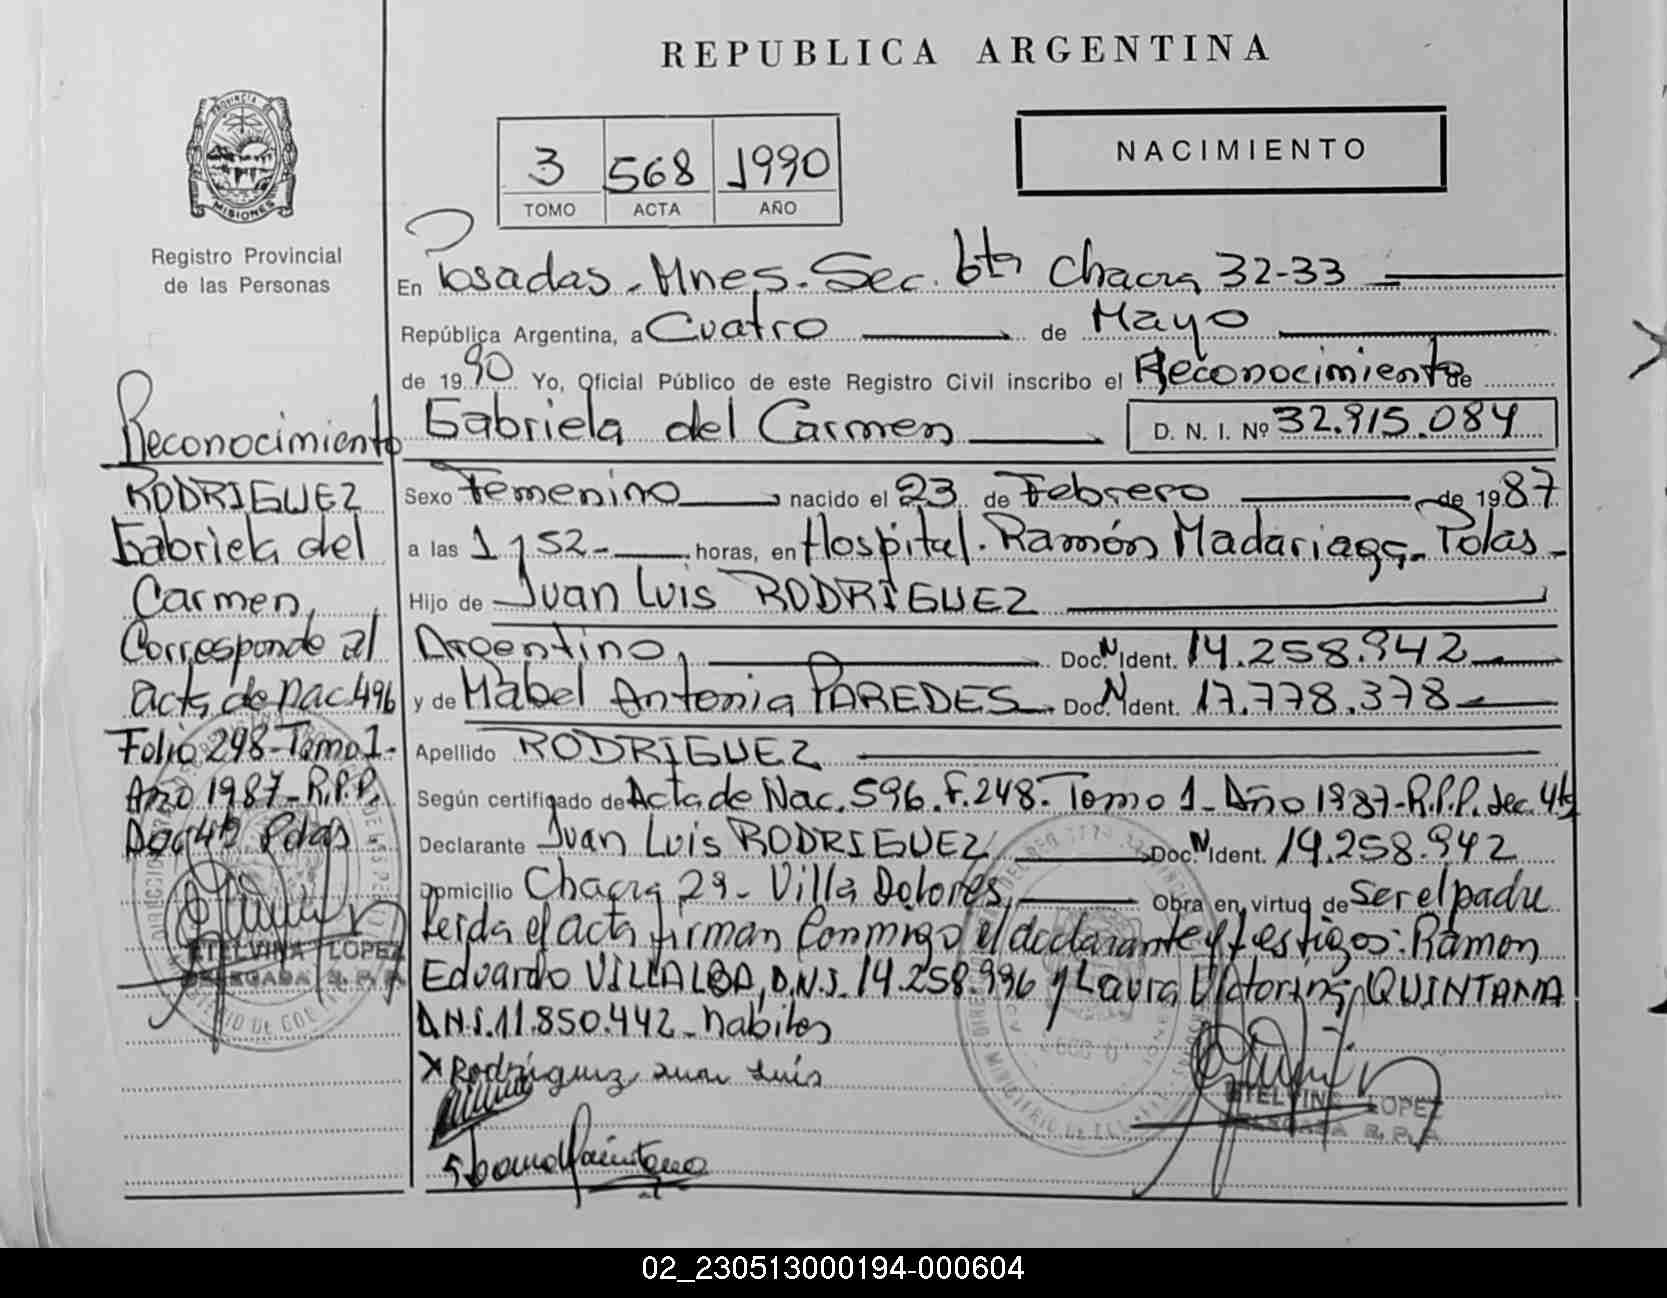 REPUBLICA ARGENTINA
PROVINCIA DE
MISIONES
Registro Provincial
de las Personas
3 568 1990
TOMO ACTA AÑO
NACIMIENTO
En Posadas - Mnes. Sec. 6ta Chacra 32-33
República Argentina, a Cuatro de Mayo
de 1990 Yo, Oficial Público de este Registro Civil inscribo el Reconocimiento de
Gabriela del Carmen D. N. I. Nº 32.915.084
Sexo Femenino nacido el 23 de Febrero de 1987
a las 1,52- horas, en Hospital. Ramón Madariaga- Pdas-
Hijo de Juan Luis RODRIGUEZ
Argentino, Doc. N Ident. 14.258.942
y de Mabel Antonia PAREDES Doc. N Ident. 17.778.378
Apellido RODRIGUEZ
Según certificado de Acta de Nac. 596. F. 248- Tomo 1- Año 1987- R.P.P. Sec. 4ta
Declarante Juan Luis RODRIGUEZ Doc. N Ident. 14.258.942
Domicilio Chacra 29- Villa Dolores, Obra en virtud de ser el padre
Leida el acta firman conmigo el declarante y testigos: Ramon
Eduardo VILLALBA, D.N.I. 14.258.996 y Laura Victorina QUINTANA
D.N.I. 11.850.442- habiles
X Rodriguez Juan Luis
ETELVINA LOPEZ
DELEGADA R. P. P.
Reconocimiento
RODRIGUEZ
Gabriela del
Carmen,
Corresponde al
acta de nac 496
Folio 298- Tomo 1-
Año 1987- R.P.P.
4ta Pdas
ETELVINA LOPEZ
DELEGADA R. P. P.
02_230513000194-000604